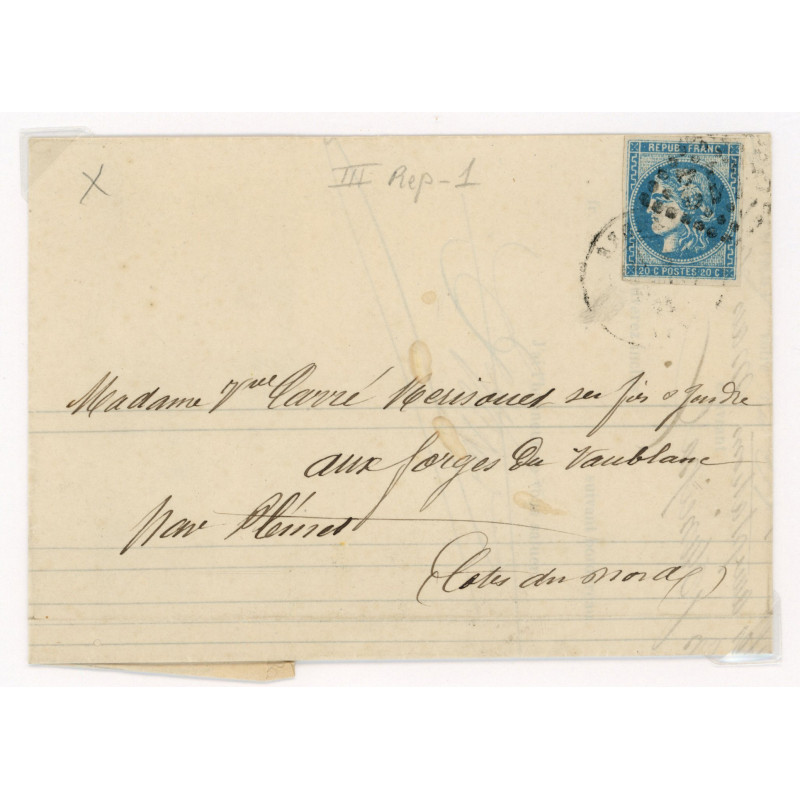 X
III Rep-1
REPUB FRANC
20 C POSTES 20 C
Madame Vve Carré Kerisouet ses fils & gendre
aux forges du Vaublanc
par Plémet
(Cotes du nord)